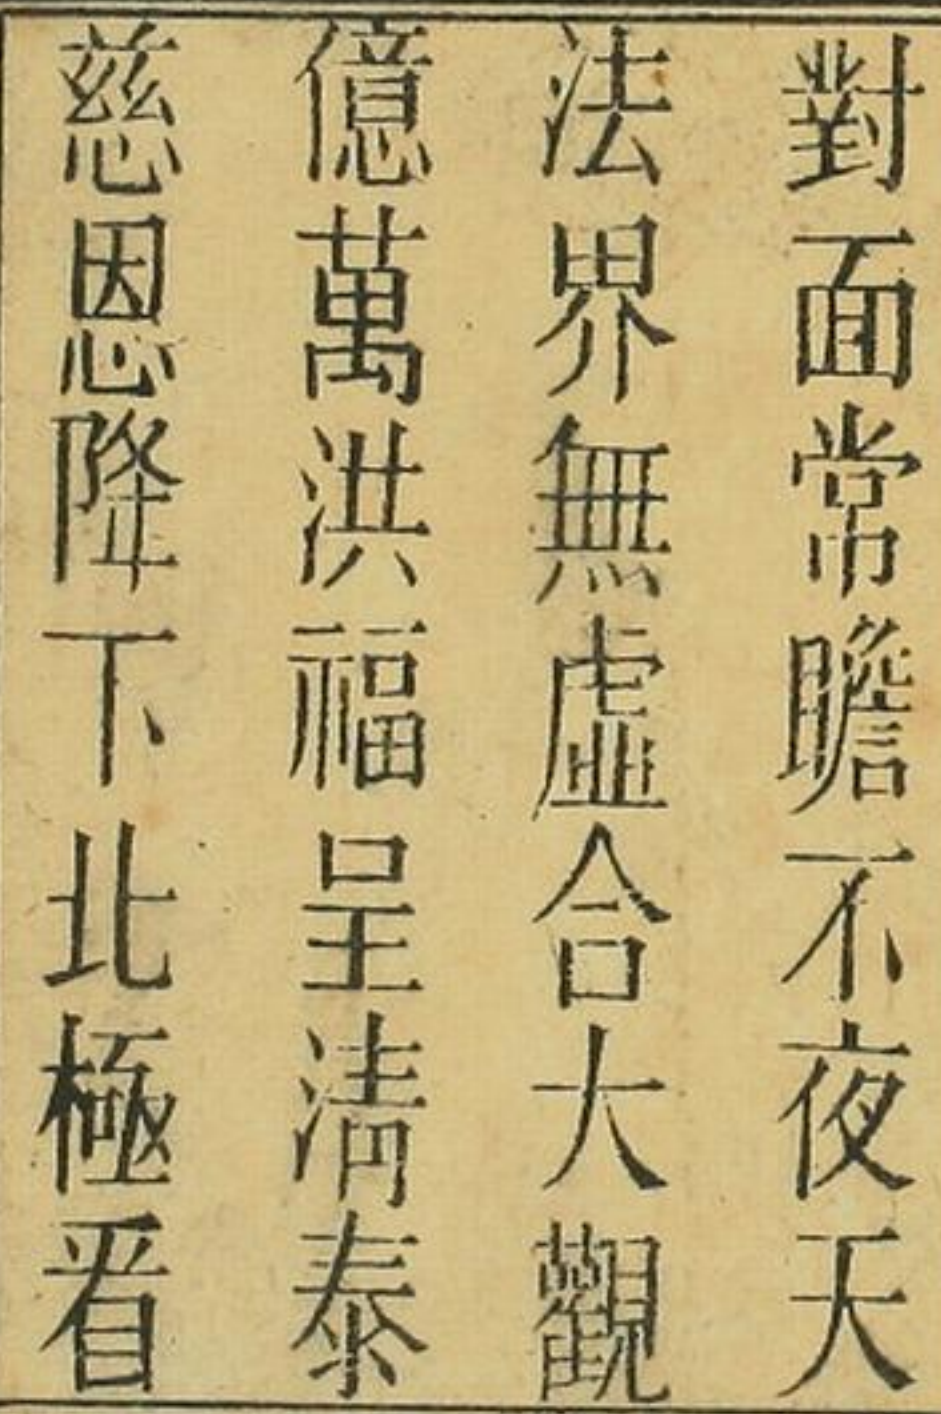 對面常瞻不夜天
法界無虛合大觀
億萬洪福呈清泰
慈恩降下北極看